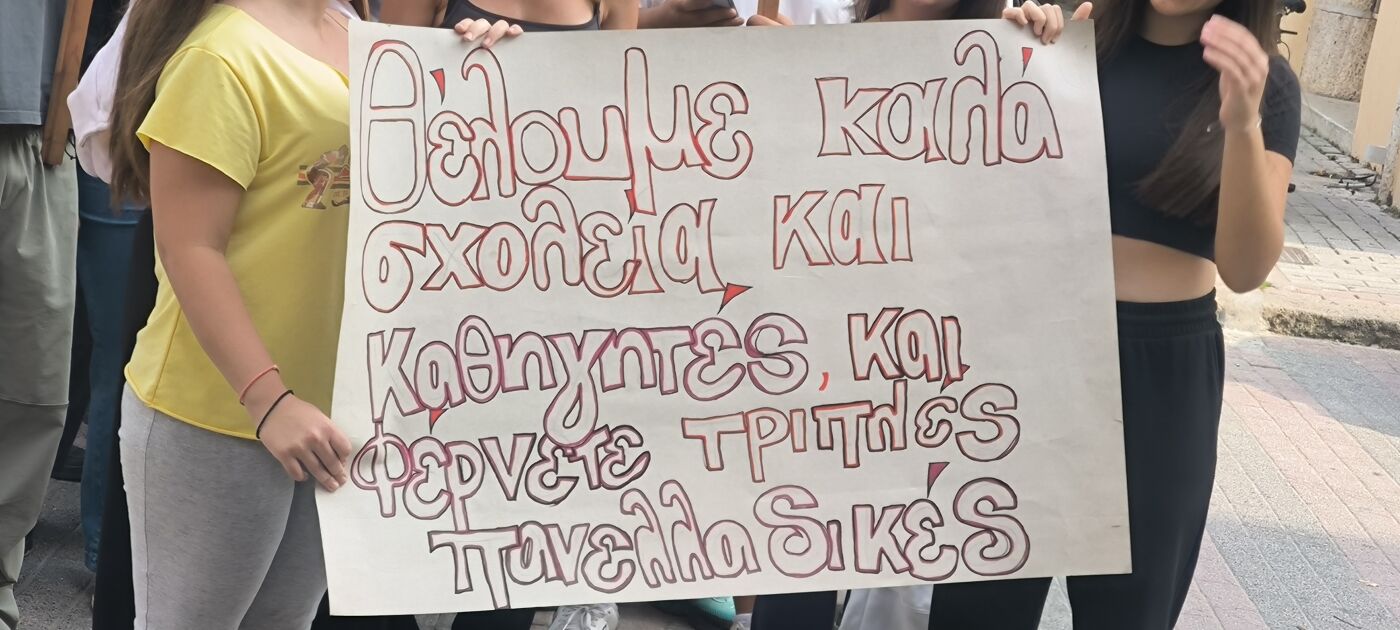 θέλουμε καλά
σχολεία και
καθηγητές, και
φέρνετε τριπλές
πανελλαδικές